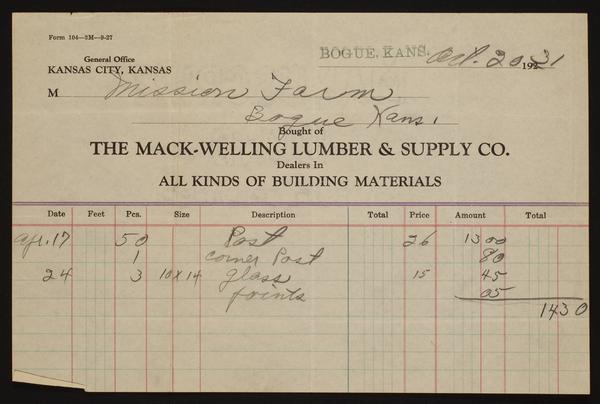 Form 104—3M—9-27
General Office
KANSAS CITY, KANSAS
BOGUE, KANS. Oct. 20, 1931
M Mission Farm
Bogue Kans.
Bought of
THE MACK-WELLING LUMBER & SUPPLY CO.
Dealers In
ALL KINDS OF BUILDING MATERIALS
Date Feet Pcs. Size Description Total Price Amount Total
Apr. 17 50 Post 26 13 00
1 corner Post 80
24 3 10 X 14 glass 15 45
points 05
14 30